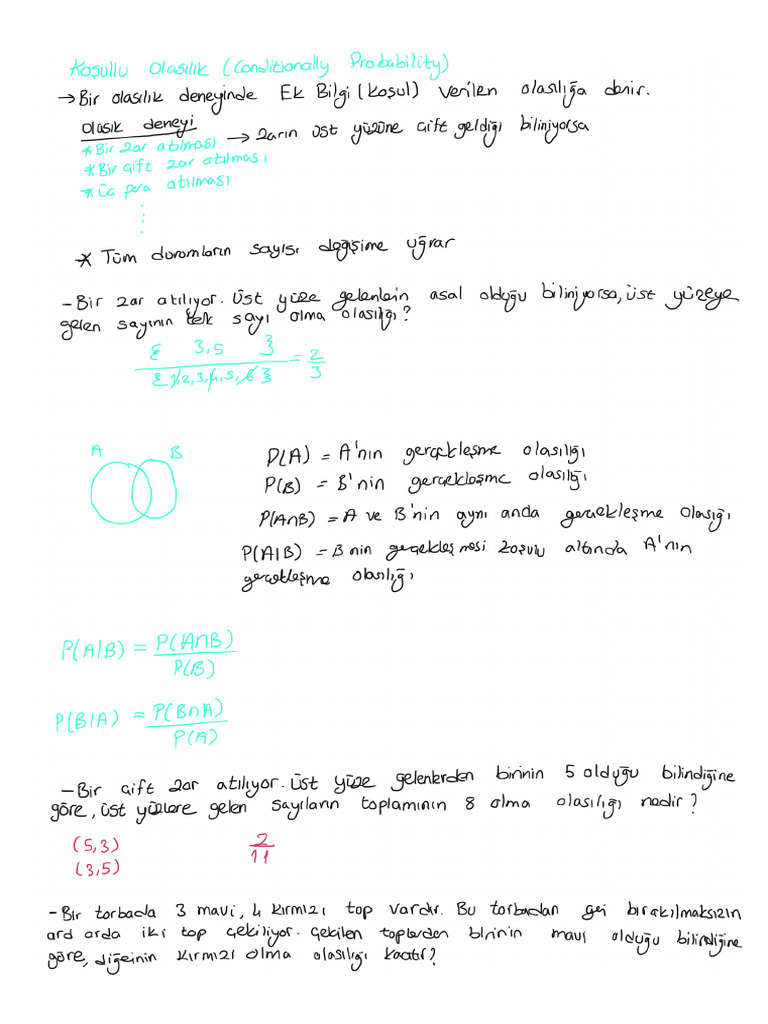 Koşullu Olasılık (Conditionally Probability)
→ Bir olasılık deneyinde Ek Bilgi (koşul) verilen olasılığa denir.
Olasık deneyi
* Bir zar atılması → zarın üst yüzüne çift geldiği biliniyorsa
* Bir çift zar atılması
* Üç para atılması
⋮
* Tüm durumların sayısı değişime uğrar
- Bir zar atılıyor. Üst yüze gelenlein asal olduğu biliniyorsa, üst yüzeye
gelen sayının tek sayı olma olasılığı?
{ 3,5 } / { 1,2,3,4,5,6 } = 2/3
A B
P(A) = A'nın gerçekleşme olasılığı
P(B) = B'nin gerçekleşme olasılığı
P(A∩B) = A ve B'nin aynı anda gerçekleşme olasılığı
P(A|B) = B nin gerçekleşmesi zoşulu altında A'nın
gerçekleşme olasılığı
P(A|B) = P(A∩B) / P(B)
P(B|A) = P(B∩A) / P(A)
- Bir çift zar atılıyor. Üst yüze gelenlerden birinin 5 olduğu bilindiğine
göre, üst yüzlere gelen sayıların toplamının 8 olma olasılığı nedir?
(5,3) 2/11
(3,5)
- Bir torbada 3 mavi, 4 kırmızı top vardır. Bu torbadan geri bırakılmaksızın
ard arda iki top çekiliyor. Çekilen toplardan birinin mavi olduğu bilindiğine
göre, diğeinin kırmızı olma olasılığı kaçtır?